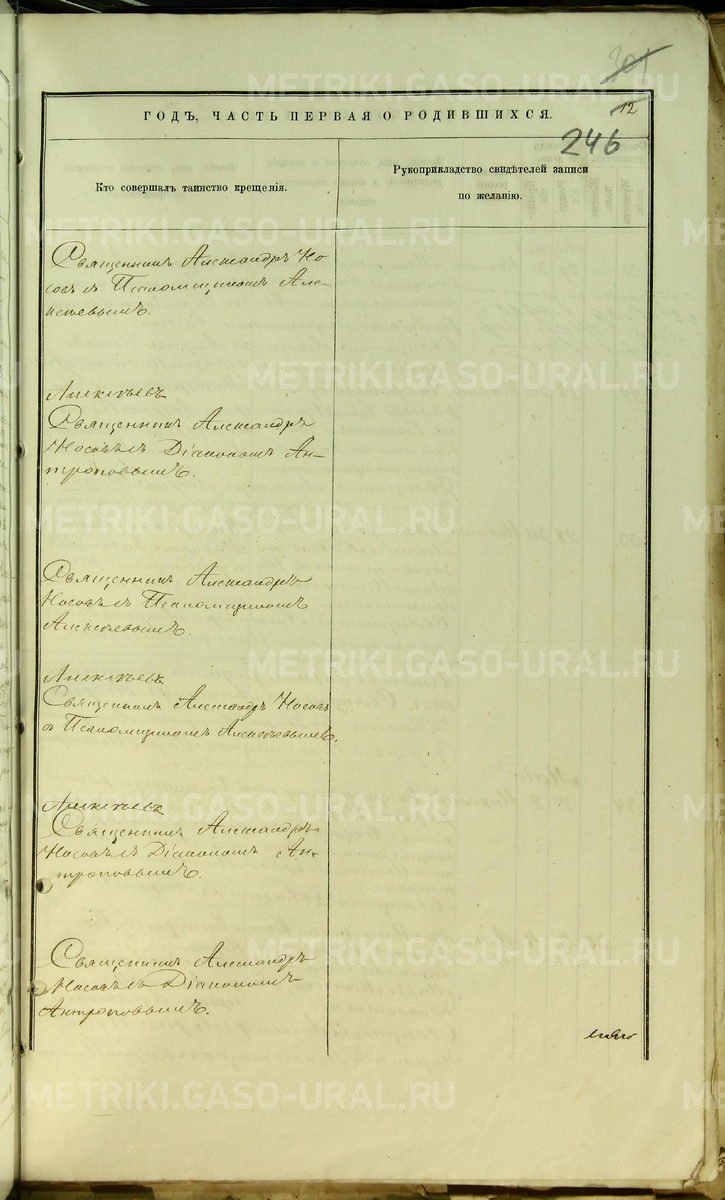 301
12
ГОДЪ, ЧАСТЬ ПЕРВАЯ О РОДИВШИХСЯ.
246
Кто совершалъ таинство крещенія.
Рукоприкладство свидѣтелей записи
по желанію.
Священникъ Александръ Но
совъ съ Псаломщикомъ Але-
ксѣевымъ.
Алексѣевъ
Священникъ Александръ
Носовъ съ Діакономъ Ан-
троповымъ.
Священникъ Александръ
Носовъ съ Псаломщикомъ
Алексѣевымъ.
Алексѣевъ
Священникъ Александръ Носовъ
съ Псаломщикомъ Алексѣевымъ.
Алексѣевъ
Священникъ Александръ
Носовъ съ Діакономъ Ан-
троповымъ.
Священникъ Александръ
Носовъ съ Діакономъ
Антроповымъ.
METRIKI.GASO-URAL.RU